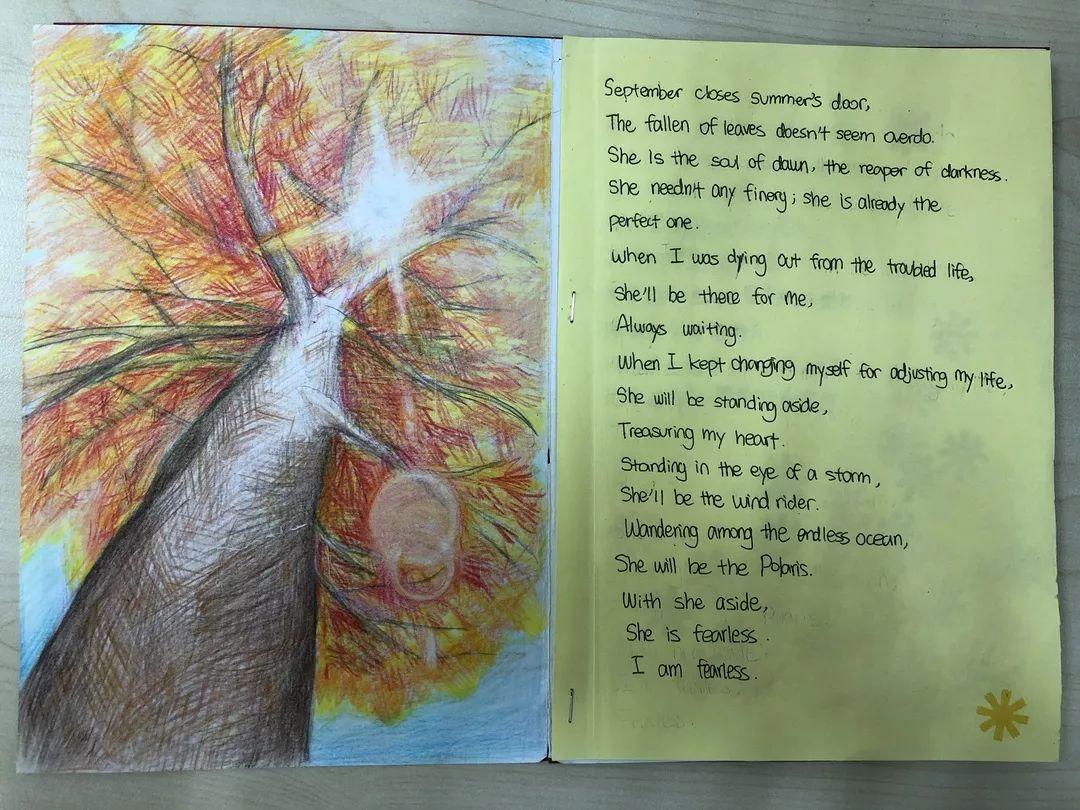 September closes summer's door,
The fallen of leaves doesn't seem overdo.
She is the soul of dawn, the reaper of darkness.
She needn't any finery; she is already the
perfect one.
When I was dying out from the troubled life,
She'll be there for me,
Always waiting.
When I kept changing myself for adjusting my life,
She will be standing aside,
Treasuring my heart.
Standing in the eye of a storm,
She'll be the wind rider.
Wandering among the endless ocean,
She will be the Polaris.
With she aside,
She is fearless.
I am fearless.